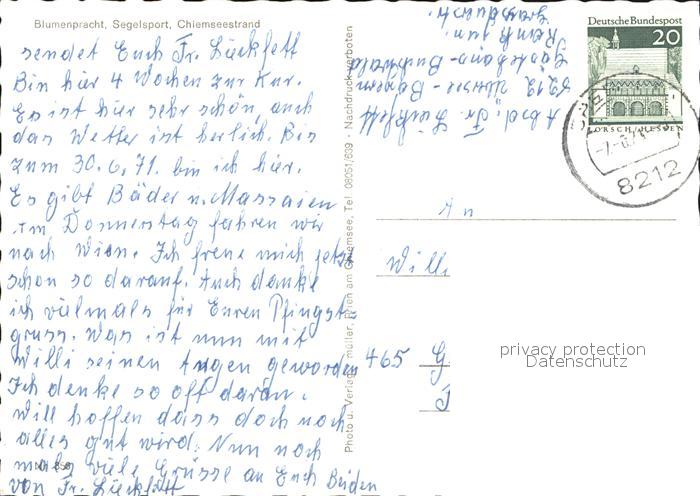 Blumenpracht, Segelsport, Chiemseestrand
sendet Euch Fr. Lückfett
Bin hier 4 Wochen zur Kur.
Es ist hier sehr schön, auch
das Wetter ist herlich. Bis
zum 30.6.71. bin ich hier.
Es gibt Bäder u. Massaien
im Donnerstag fahren wir
nach Wien. Ich freue mich jetzt
schon so darauf. Auch danke
ich vielmals für Euren Pfingst-
gruss. Was ist nun mit
Willi seinen Augen geworden
Ich denke so oft daran.
Will hoffen dass doch noch
alles gut wird. Nun noch
mals viele Grüsse an Euch Beiden
von Fr. Lückfett
Photo u. Verlag müller, Prien am Chiemsee, Tel. 08051/609 - Nachdruck verboten
Absd.: Fr. Lückfett
8212 Übersee - Bayern
Gästehaus - Buchwald
Deutsche Bundespost
20
LORSCH/HESSEN
8212
An
Willi
465 G
privacy protection
Datenschutz